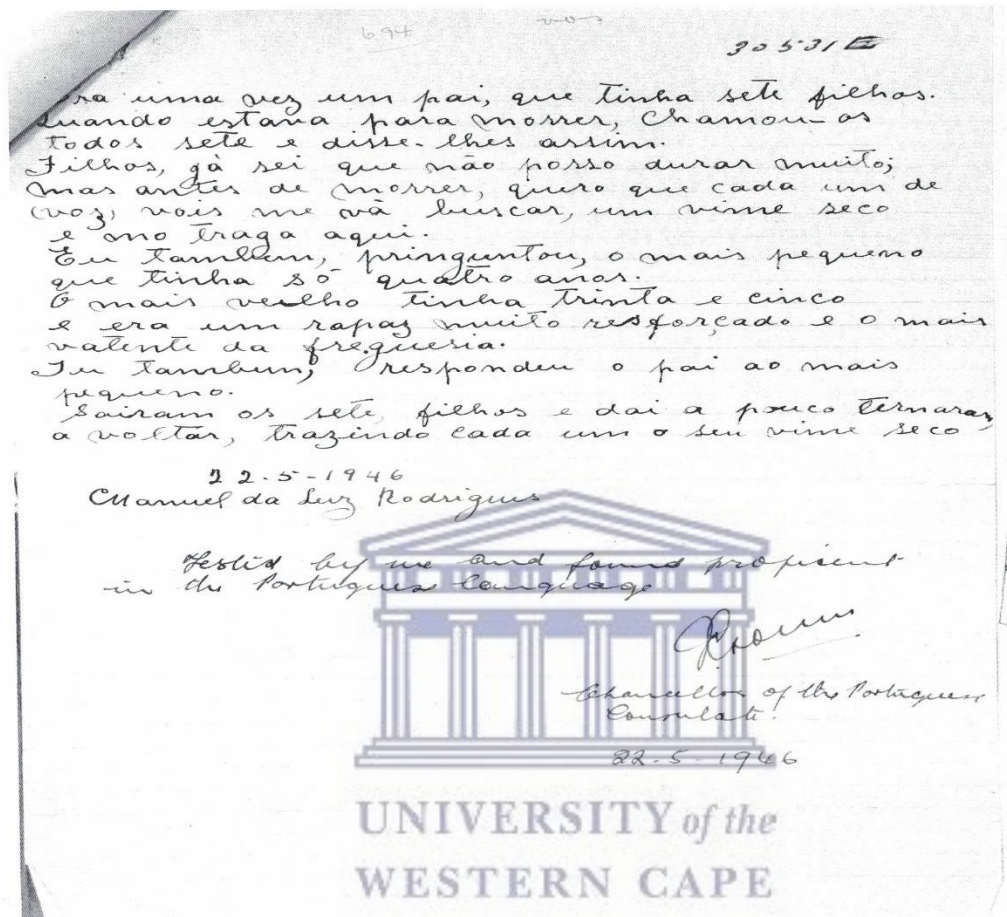 694
vos
30531 E
ra uma vez um pai, que tinha sete filhos.
Quando estava para morrer, chamou-os
todos sete e disse-lhes assim.
Filhos, já sei que não posso durar muito;
mas antes de morrer, quero que cada um de
(voz, vois me vá buscar, um vime seco
e mo traga aqui.
Eu tambem, pringuntou, o mais pequeno
que tinha só quatro anos.
O mais veelho tinha trinta e cinco
e era um rapaz muito resforçado e o mais
valente da freguesia.
Tu tambem, respondeu o pai ao mais
pequeno.
Sairam os sete, filhos e dai a pouco ternaram
a voltar, trazindo cada um o seu vime seco
22-5-1946
Manuel da Luz Rodrigues
Tested by me and found proficient
in the Portuguese language
Chancellor of the Portuguese
Consulate.
22-5-1946
UNIVERSITY of the
WESTERN CAPE